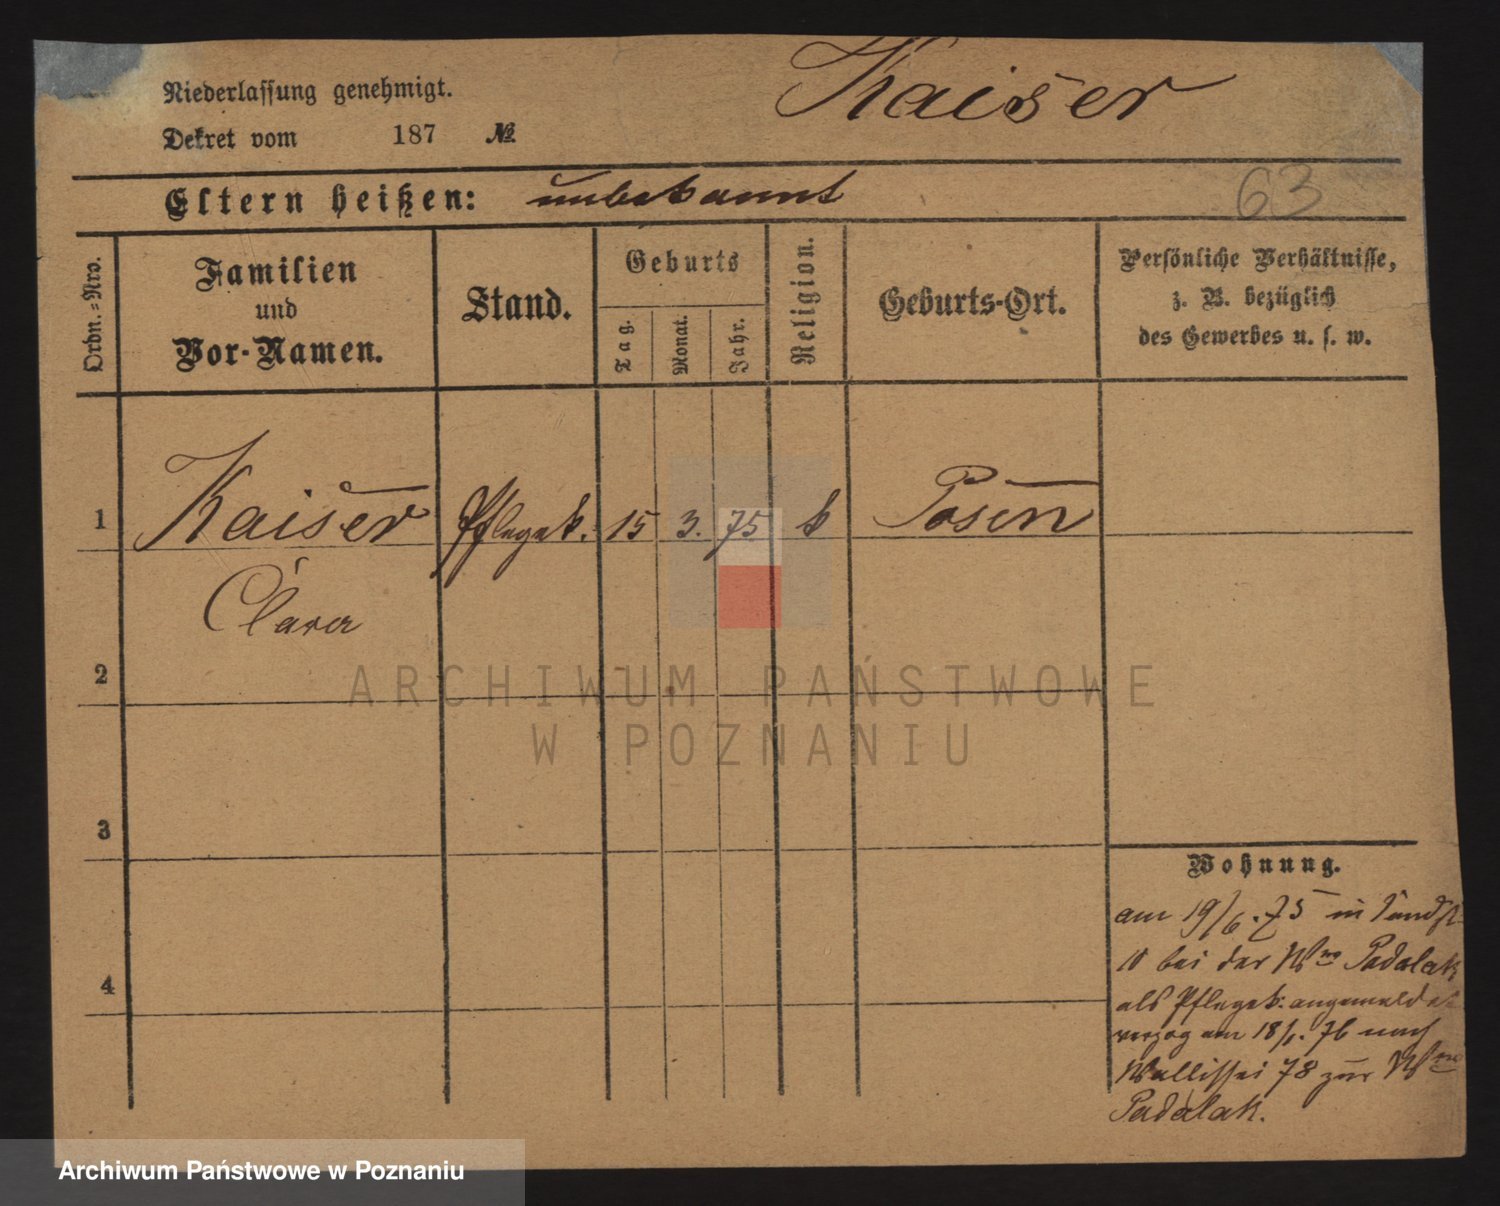 Kaiser
Niederlassung genehmigt.
Dekret vom 187 №
Eltern heißen: unbekannt
63
Ordn.-Nro.
Familien
und
Vor-Namen.
Stand.
Geburts
Tag.
Monat.
Jahr.
Religion.
Geburts-Ort.
Persönliche Verhältnisse,
z. B. bezüglich
des Gewerbes u. s. w.
1 Kaiser Pflegek. 15 3. 75 k Posen
Clara
2
3
4
Wohnung.
am 19/6. 75 in
10 bei der Wwe Padalak
als Pflegek: angemeldet
verzog am 18/1. 76 nach
Wallischei 78 zur Wwe
Padalak.
ARCHIWUM PAŃSTWOWE
W POZNANIU
Archiwum Państwowe w Poznaniu